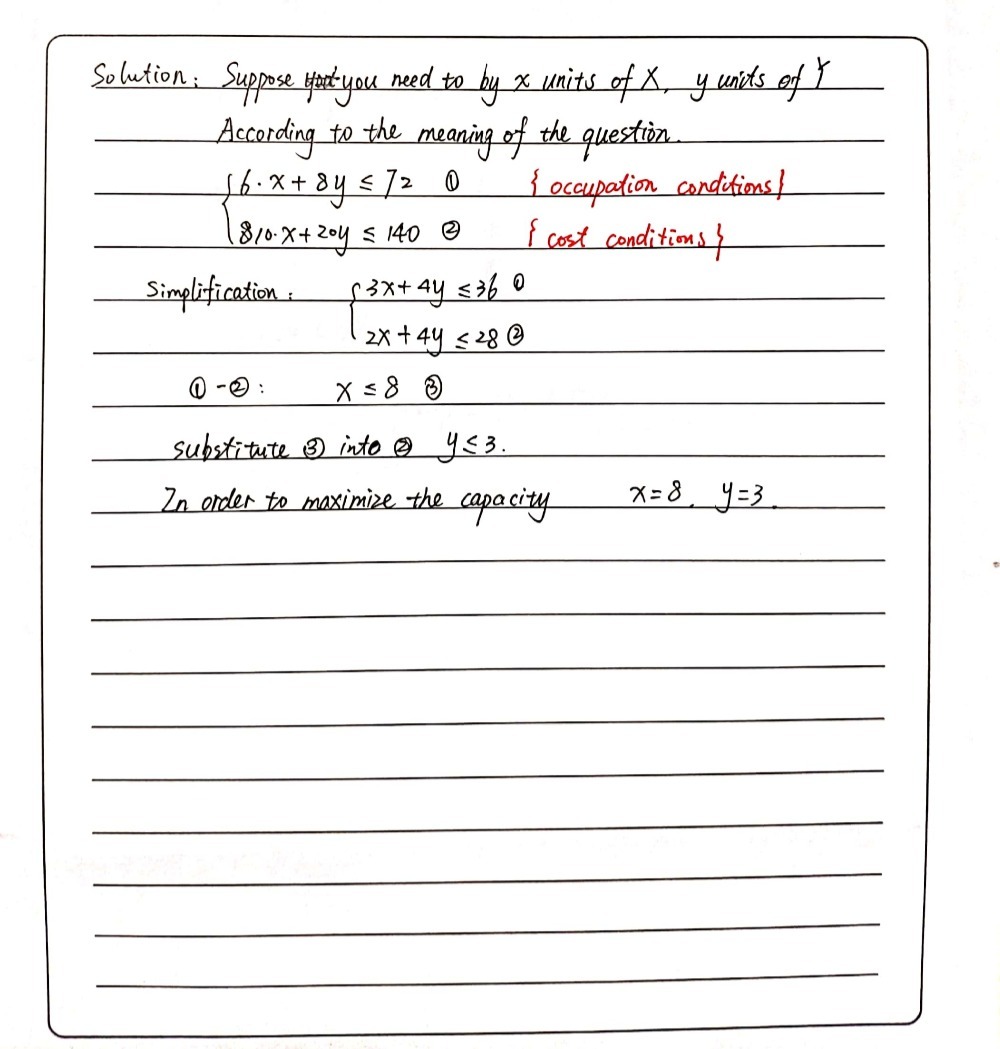 Solution: Suppose you need to by x units of X, y units of Y
According to the meaning of the question.
{6·x+8y≤72 ① {occupation conditions}
10·x+20y≤140 ② {cost conditions}
Simplification: {3x+4y≤36 ①
2x+4y≤28 ②
①-②: x≤8 ③
substitute ③ into ② y≤3.
In order to maximize the capacity x=8, y=3.